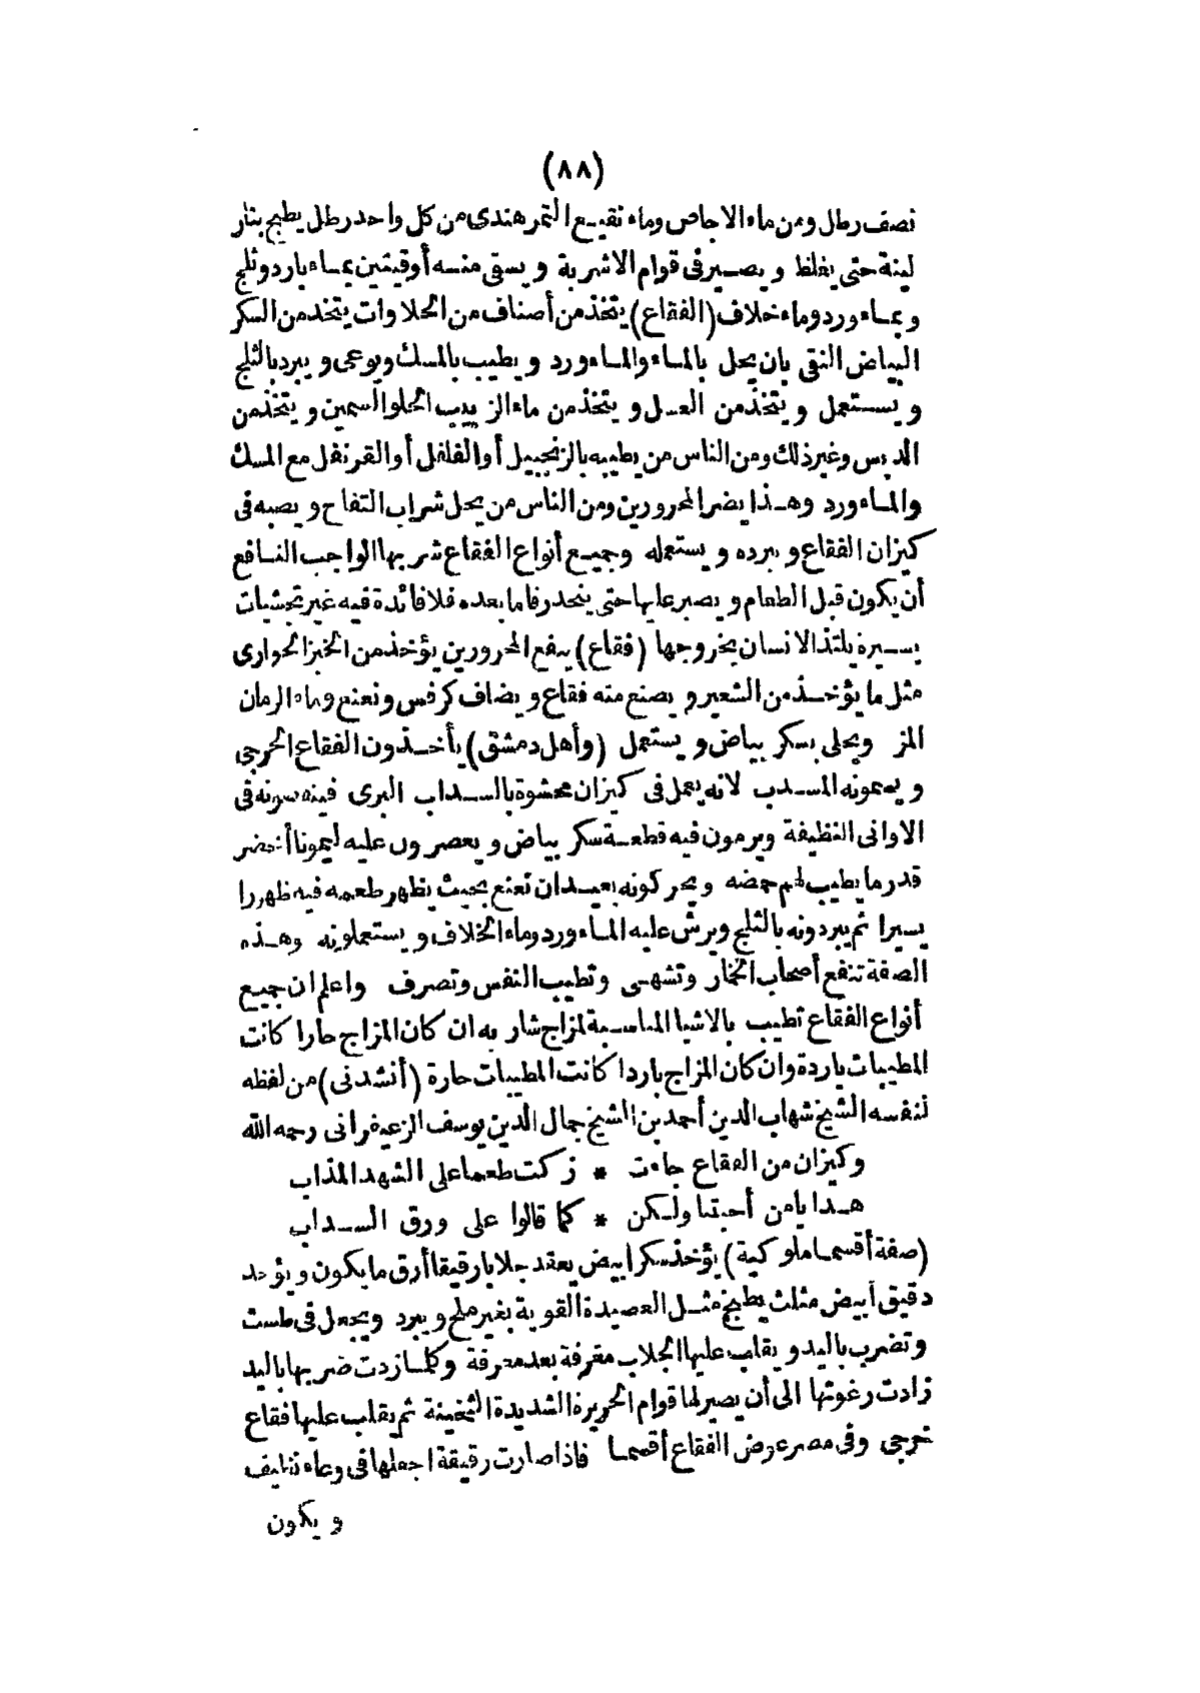 (٨٨)
نصف رطل ومن ماء الاجاص وماء نقيع التمر هندى من كل واحد رطل يطبخ بنار
لينة حتى يغلظ ويصير فى قوام الاشربة ويسقى منه أوقيتين بماء بارد وثلج
وبماء ورد وماء خلاف (الفقاع) يتخذ من أصناف من الحلاوات يتخذ من السكر
البياض النقى بان يحل بالماء والماء ورد ويطيب بالمسك ويوعى ويبرد بالثلج
ويستعمل ويتخذ من العسل ويتخذ من ماء الزبيب الحلو السمين ويتخذ من
الدبس وغير ذلك ومن الناس من يطيبه بالزنجبيل أو الفلفل أو القرنفل مع المسك
والماء ورد وهذا يضر المحرورين ومن الناس من يحل شراب التفاح ويصبه فى
كيزان الفقاع ويبرده ويستعمله وجميع أنواع الفقاع شربها الواجب النافع
أن يكون قبل الطعام ويصبر عليها حتى ينحدر فاما بعده فلا فائدة فيه غير تجشيات
يسيرة يلتذ الانسان بخروجها (فقاع) ينفع المحرورين يؤخذ من الخبز الحوارى
مثل ما يؤخذ من الشعير ويصنع منه فقاع ويضاف كرفس ونعنع وماء الرمان
المز ويحلى بسكر بياض ويستعمل (وأهل دمشق) يأخذون الفقاع الخرجى
ويسمونه المسدب لانه يعمل فى كيزان محشوة بالسداب البرى فينفسونه فى
الاوانى النظيفة ويرمون فيه قطعة سكر بياض ويعصرون عليه ليمونا أخضر
قدر ما يطيب لهم حمضه ويحركونه بعيدان نعنع بحيث يظهر طعمه فيه ظهورا
يسيرا ثم يبردونه بالثلج ويرش عليه الماء ورد وماء الخلاف ويستعملونه وهذه
الصفة تنفع أصحاب الخمار وتشهى وتطيب النفس وتصرف واعلم ان جميع
أنواع الفقاع تطيب بالاشيا المناسبة لمزاج شاربه ان كان المزاج حارا كانت
المطيبات باردة وان كان المزاج باردا كانت المطيبات حارة (أنشدنى) من لفظه
لنفسه الشيخ شهاب الدين أحمد بن الشيخ جمال الدين يوسف الزعيفرانى رحمه الله
وكيزان من الفقاع جاءت * زكت طعما على الشهد المذاب
هدايا من أحبتنا ولكن * كما قالوا على ورق السداب
(صفة أقسما ملوكية) يؤخذ سكر ابيض يعقد جلابا رقيقا أرق ما يكون ويؤخذ
دقيق أبيض مثلث يطبخ مثل العصيدة القوية بغير ملح ويبرد ويجعل فى طست
وتضرب باليد ويقلب عليها الجلاب مغرفة بعد مغرفة وكلما زدت ضربها باليد
زادت رغوتها الى أن يصير لها قوام الحريرة الشديدة الثخينة ثم يقلب عليها فقاع
خرجى وفى مصر عوض الفقاع أقسما فاذا صارت رقيقة اجعلها فى وعاء نظيف
ويكون